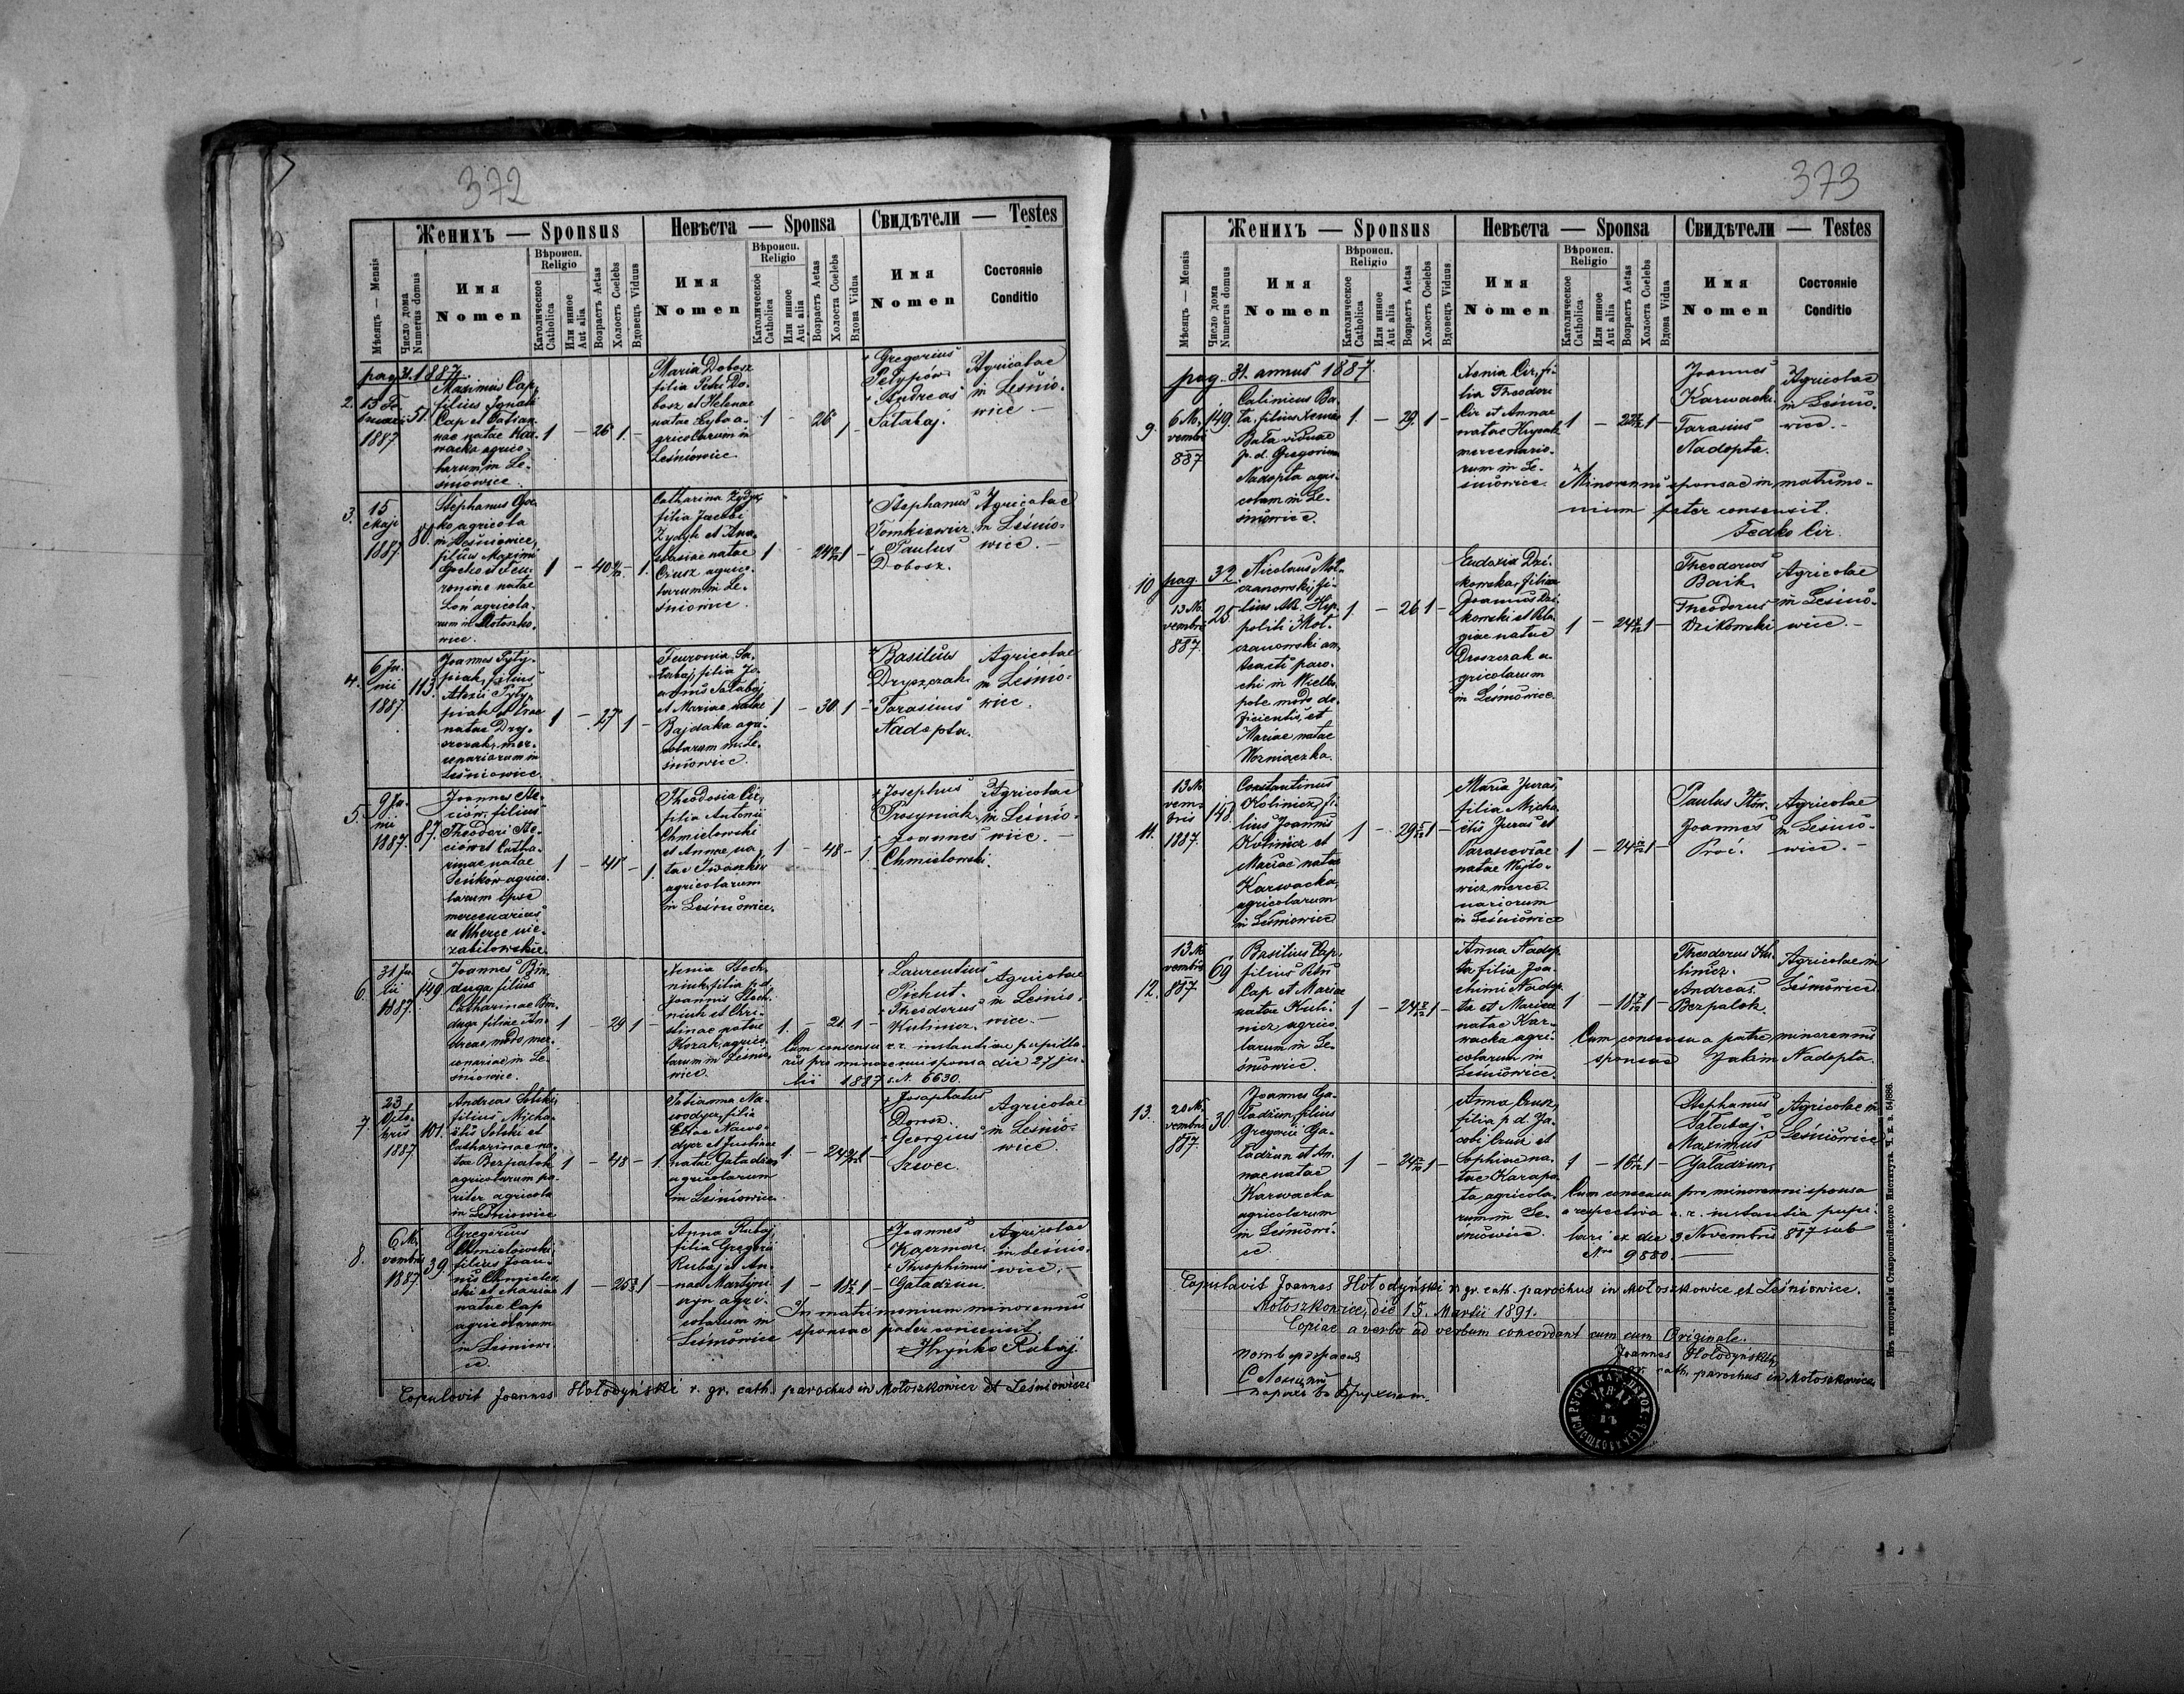 372
Женихъ — Sponsus
Невѣста — Sponsa
Свидѣтели — Testes
Мѣсяцъ — Mensis
Число дома
Numerus domus
Имя
Nomen
Вѣроисп.
Religio
Католическое
Catholica
Или инное
Aut alia
Возрастъ Aetas
Холостъ Coelebs
Вдовецъ Viduus
Имя
Nomen
Вѣроисп.
Religio
Католическое
Catholica
Или инное
Aut alia
Возрастъ Aetas
Холоста Coelebs
Вдова Vidua
Имя
Nomen
Состояніе
Conditio
pag. 31. 1887.
2.
1887
51.
Maximus Cap,
filius Ignati
Cap et Tatian-
nae natae Kar-
wacka agrico-
larum in Le-
śniowice.
1 — 26 1. —
Maria Dobosz
filia Petri Do-
bosz et Helenae
natae Łyba a-
gricolarum in
Leśniowice.
1 — 26 1 —
Gregorius
Petypów
Andreas
Sałabaj.
Agricolae
in Leśnio-
wice —
3.
15
Maji
1887
80.
ko agricola
in Leśniowice,
filius Maximi
roniae natae
Łoń agricola-
rum in Mołoszko-
wice.
1 — 40 — 1.
Catharina Zydyk
filia Jacobi
Zydyk et Ana-
stasiae natae
Crusz agrico-
larum in Le-
śniowice.
1 — 24 1 —
Stephanus
Tomkiewicz
Paulus
Dobosz.
Agricolae
in Leśnio-
wice. —
4.
6 Ju-
nii
1887
113.
Joannes Pyty-
piak, filius
Alexii Pyty-
piak et Evae
natae Dry-
szczak, mer-
cenariarum in
Leśniowice.
1 — 27 1 —
Feuronia Sa-
łabaj, filia Jo-
annis Sałabaj
et Mariae natae
Bajdaka agri-
colarum in Le-
śniowice.
1 — 30 1 —
Basilius
Dryszczak
Tarasius
Nadopta.
Agricolae
in Leśnio-
wice.
5.
9 Ju-
nii
1887.
87.
Joannes Ste-
ciów, filius
Theodori Ste-
ciów et Catha-
rinae natae
Seńków agrico-
larum ipse
mercenarius
zabitowskie.
1 — 41 — 1.
Theodosia Cir,
filia Antonii
Chmielowski
et Annae na-
tae Iwańków
agricolarum
in Leśniowice.
1 — 48 — 1.
Josephus
Prosyniak
Joannes
Chmielowski.
Agricolae
in Leśnio-
wice. —
6.
31 Ju-
lii
1887.
149
Joannes Bin-
duga filius
Catharinae Bin-
duga filiae An-
dreae, modo mer-
cenariae in Le-
śniowice.
1 — 29 1 —
Xenia Stech-
niuk, filia p.d.
Joannis Stech-
niuk et Chri-
stinae natae
Kozak, agrico-
larum in Leśnio-
wice.
1. — 21 1 —
Laurentius
Pichut.
Theodorus
Kulinicz.
Agricolae
in Leśnio-
wice. —
Cum consensu c.r. instantiae pupilla-
ris pro minorenni sponsa die 27 ju-
lii 1887 s. N. 6630.
7.
23
Octo-
bris
1887
101.
Andreas Solski
filius Micha-
elis Solski et
Catharinae na-
tae Bezpalok
agricolarum pa-
riter agricola
in Leśniowice
1 — 48 — 1.
Tatianna Na-
wodyor, filia
Eliae Nawo-
dyor et Justinae
natae Gaładzun
agricolarum
in Leśniowice.
1. — 24 1 —
Josaphatus
Dorosz.
Georgius
Szwec.
Agricolae
in Leśnio-
wice.
8.
6 No-
vembris
1887
39
Gregorius
Chmielowski
filius Joan-
nis Chmielow-
ski et Mariae
natae Cap
agricolarum
in Leśniowi-
ce.
1 — 25 1 —
Anna Rubaj,
filia Gregorii
Rubaj et An-
nae Martyni-
szyn agri-
colarum in
Leśniowice
1 — 18 1 —
Joannes
Kaczmar.
Throphimus
Gaładzun.
Agricolae
in Leśnio-
wice. —
In matrimonium minorennis
sponsae pater consensit.
Hryńko Rubaj.
Copulavit Joannes Hołodyński r. gr. cath. parochus in Mołoszkowice et Leśniowice
373
Женихъ — Sponsus
Невѣста — Sponsa
Свидѣтели — Testes
Мѣсяцъ — Mensis
Число дома
Numerus domus
Имя
Nomen
Вѣроисп.
Religio
Католическое
Catholica
Или инное
Aut alia
Возрастъ Aetas
Холостъ Coelebs
Вдовецъ Viduus
Имя
Nomen
Вѣроисп.
Religio
Католическое
Catholica
Или инное
Aut alia
Возрастъ Aetas
Холоста Coelebs
Вдова Vidua
Имя
Nomen
Состояніе
Conditio
pag. 31. annus 1887.
9.
6 No-
vembris
887
149.
Calinicus Ba-
ta, filius Xeniae
Bata viduae
p. d. Gregorium
Nadopta agri-
colam in Le-
śniowice.
1. — 29. 1 —
Xenia Cir, fi-
lia Theodori
Cir et Annae
natae
mercenario-
rum in Le-
śniowice.
1 — 22 1 —
Joannes
Karwacki.
Tarasius
Nadopta.
Agricolae
in Leśnio-
wice. —
Minorennis sponsae in matrimo-
nium pater consensit.
Fedko Cir.
10
pag. 32.
13 No-
vembris
887.
25.
Nicolaus Moł-
czanowski, fi-
lius AR. Hip-
politi Moł-
czanowski an-
teacti paro-
chi in Wielko-
pole modo de-
ficientis, et
Mariae natae
Worniaczka.
1. — 26 1 —
Eudoxia Dzi-
kowska, filia
Joannis Dzi-
kowski et Pela-
giae natae
Droszczak a-
gricolarum
in Leśniowice.
1 — 24 1 —
Theodorus
Baik.
Theodorus
Dzikowski
Agricolae
in Leśnio-
wice. —
11.
13 No-
vem-
bris
1887.
148.
Constantinus
Kolinicz, fi-
lius Joannis
Kolinicz et
Mariae natae
Karwacka,
agricolarum
in Leśniowice
1 — 29 1 —
Maria Juras,
filia Micha-
elis Juras et
Parasceviae
natae Wojto-
wicz, merce-
nariorum
in Leśniowice
1 — 24 1 —
Paulus
Joannes
Proć.
Agricolae
in Leśnio-
wice. —
12.
13 No-
vembris
887
69
Basilius Cap,
filius Petri
Cap et Mariae
natae Kuli-
nicz, agrico-
larum in Le-
śniowice.
1 — 24 1 —
Anna Nadop-
ta filia Joa-
chimi Nadop-
ta et Mariae
natae Kar-
wacka agri-
colarum in
Leśniowice.
1 — 18 1 —
Theodorus Ku-
linicz.
Andreas
Bezpalok.
Agricolae in
Leśniowice.
Cum consensu a patre minorennis
sponsae Jakim Nadopta.
13.
20 No-
vembris
887.
30.
Joannes Ga-
ładzun, filius
Gregorii Ga-
ładzun et An-
nae natae
Karwacka
agricolarum
in Leśniowi-
ce.
1 — 24 1 —
Anna Crusz,
filia p. d. Ja-
cobi Crusz et
Sophiae na-
tae Karapa-
ta, agricola-
rum in Le-
śniowice.
1 — 16 1 —
Stephanus
Sałabaj.
Maximus
Gaładzun.
Agricolae in
Leśniowice
Cum consensu pro minorenni sponsa
a respectiva c. r. instantia pupi-
lari ex die 3 Novembris 887 sub
Nro 9880. —
Copulavit Joannes Hołodyński r. gr. cath. parochus in Mołoszkowice et Leśniowice.
Mołoszkowice, die 15. Martii 1891.
Copiae a verbo ad verbum concordant cum cum Originale.
Joannes Hołodyński
gr. cath. parochus in Mołoszkowice
Изъ типографіи Ставропигійского Института. Ч. з. 54/886.